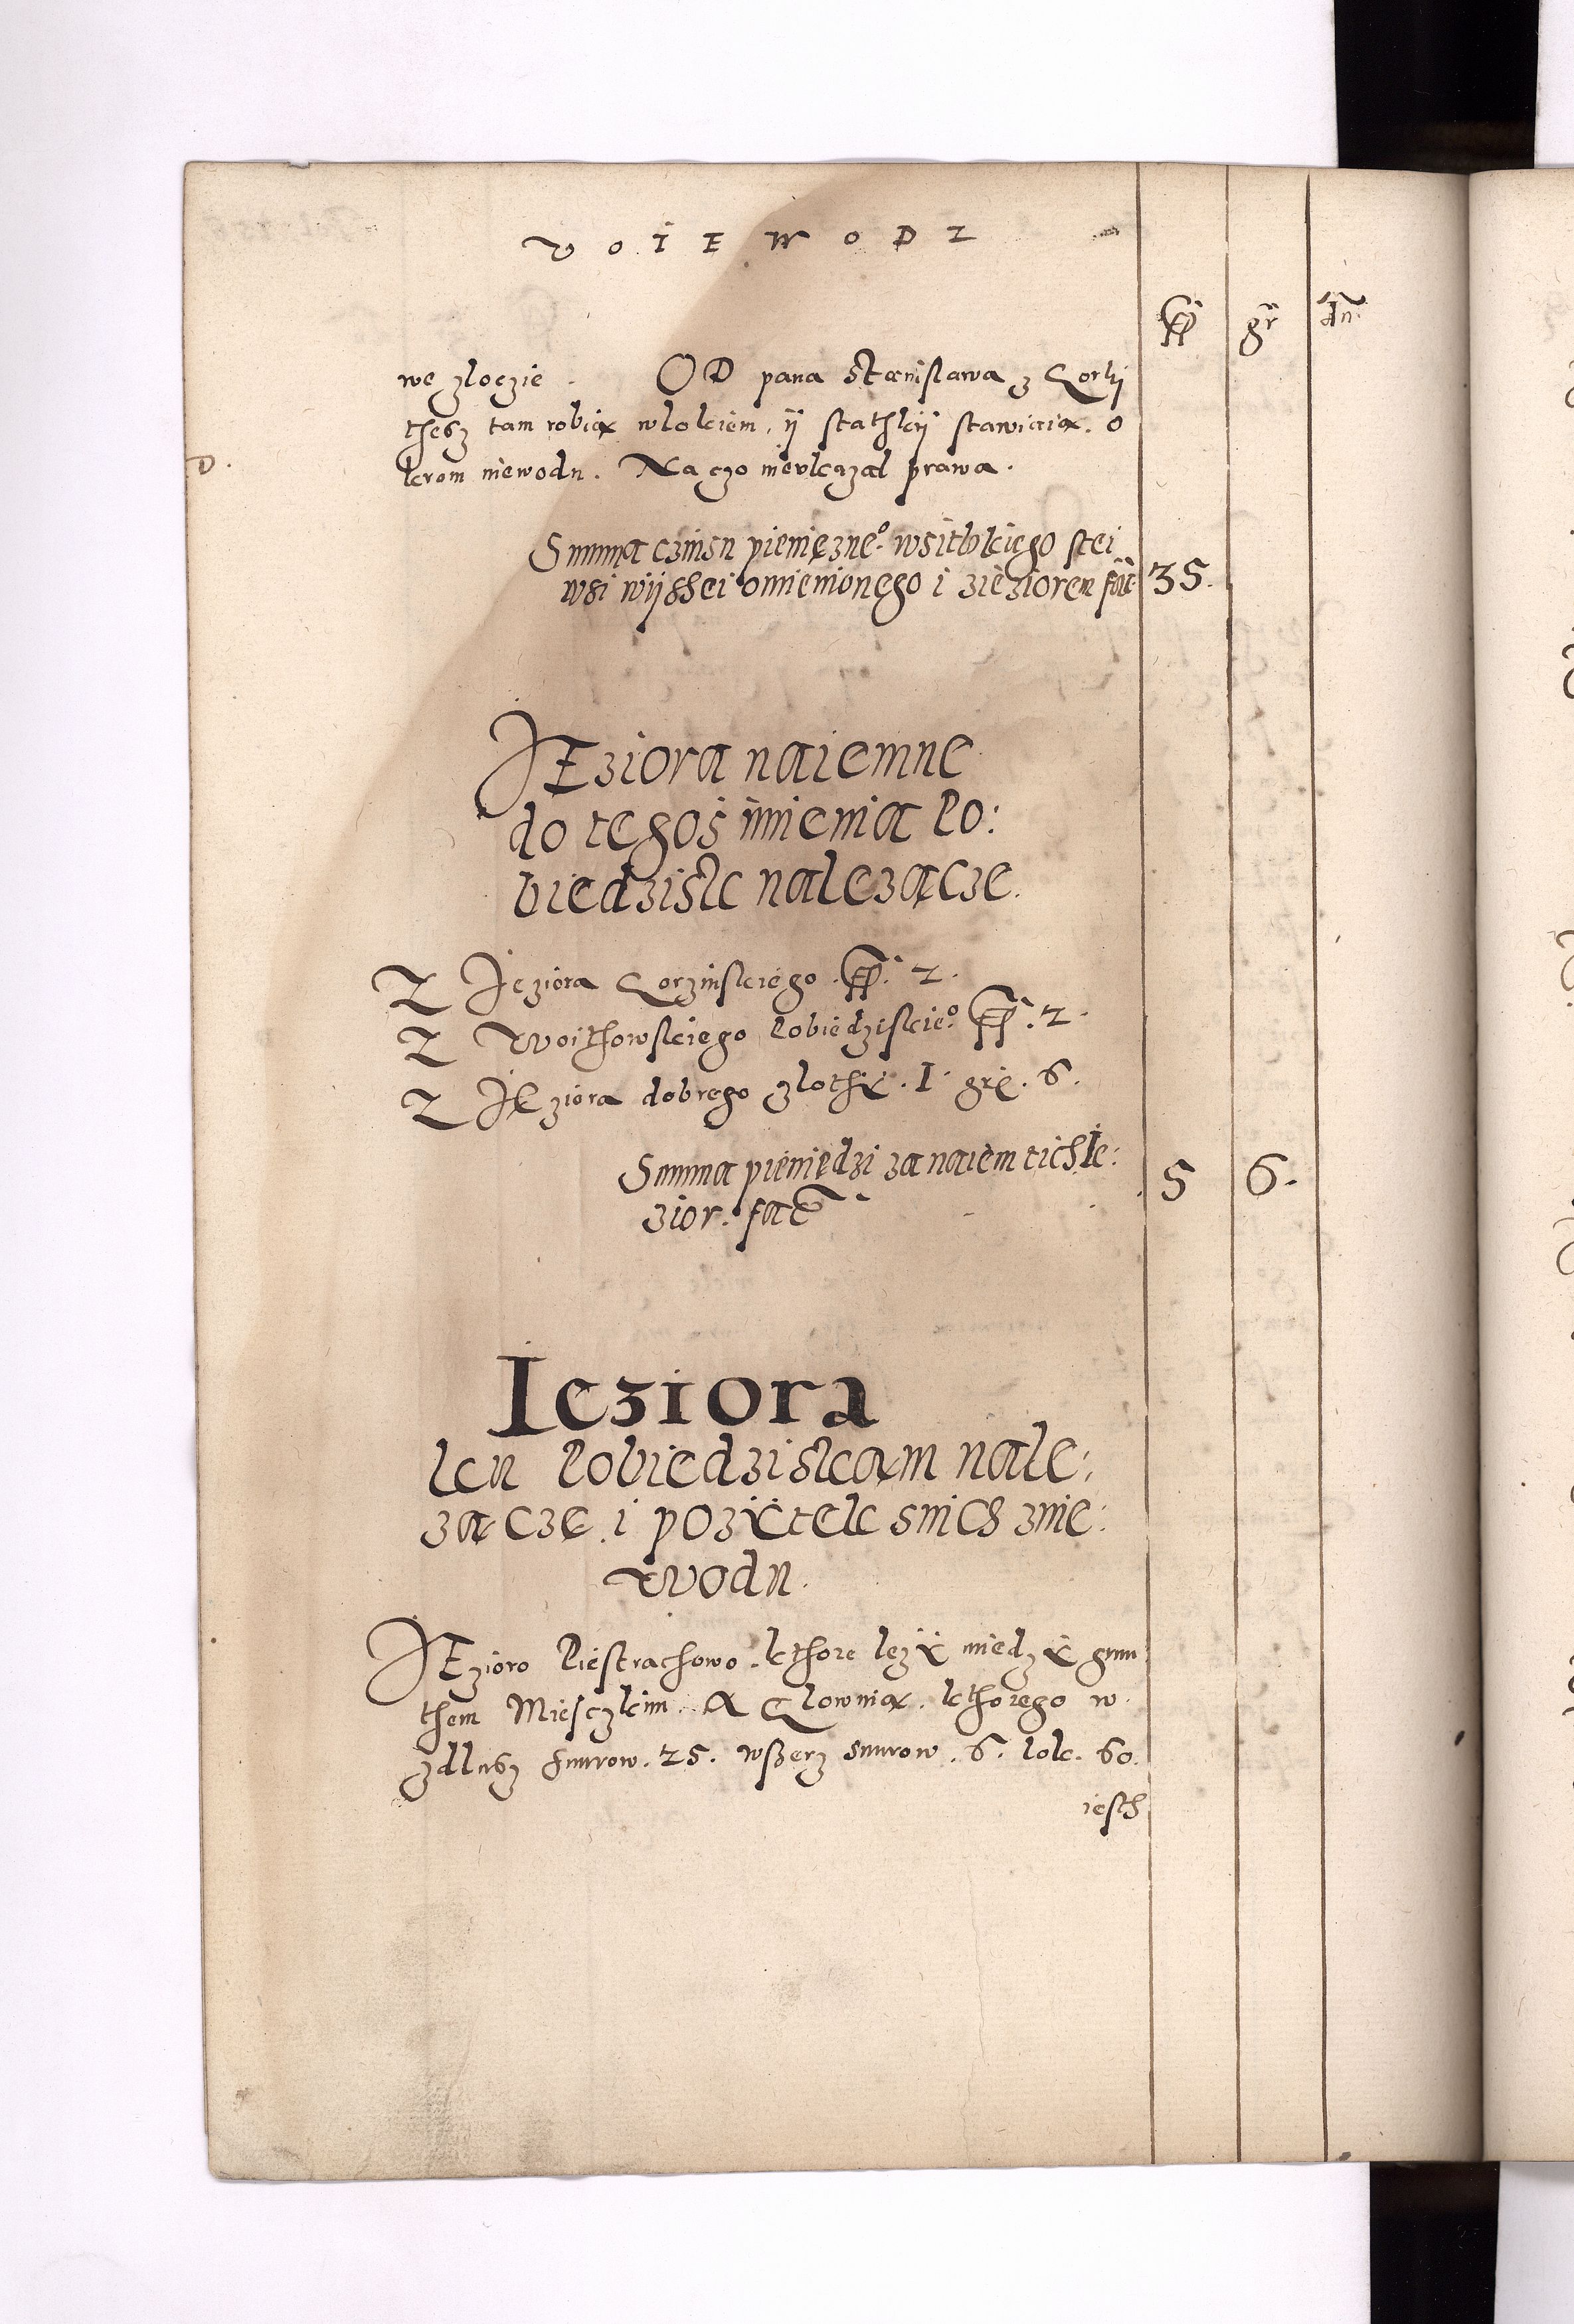 VOIEWODZ
gr dn
we zloczie. OD pana Stanislawa z Gorky
thesz tam robią wlokiem, ÿ stathkÿ stawiaią. o
D.
krom niewodu. Na czo nieukazal prawa.
Summa czinsu pieniężneo. wsitkiego stei
wsi wÿsshei omienionego i zieziorem facit 35.
IEziora naiemne
do tegoś imienia Po:
biedzisk należącze.
Z Ieziora Gorzinskiego. 2.
Z Woithowskiego Pobiedziskieo. 2.
Z IEziora dobrego zlothÿ. I. grſ. 6.
Summa pieniędzi za naiem tich Ie:
zior. facit 5 6.
Ieziora
ku Pobiedziskam nale:
żącze. i pożÿtek snich znie:
wodu.
IEzioro Piestrachowo. kthore leżÿ miedzÿ grun
them Miesczkim. A Glownią. kthorego w
zdlusz snurow. 25. wszerz snurow. 6. lok. 60.
iesth